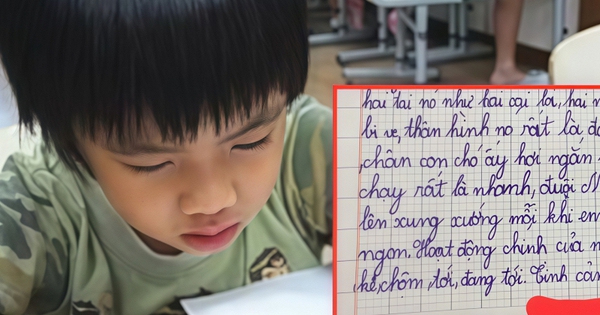 hai tai nó như hai cái loa, hai
bi ve, thân hình nó rất là
chân con chó ấy hơi ngắn
chạy rất là nhanh, đuôi
lên xung xướng mỗi khi em
ngon. Hoạt động chính của
kẻ, chộm, tới, đang tới. Tình cảm